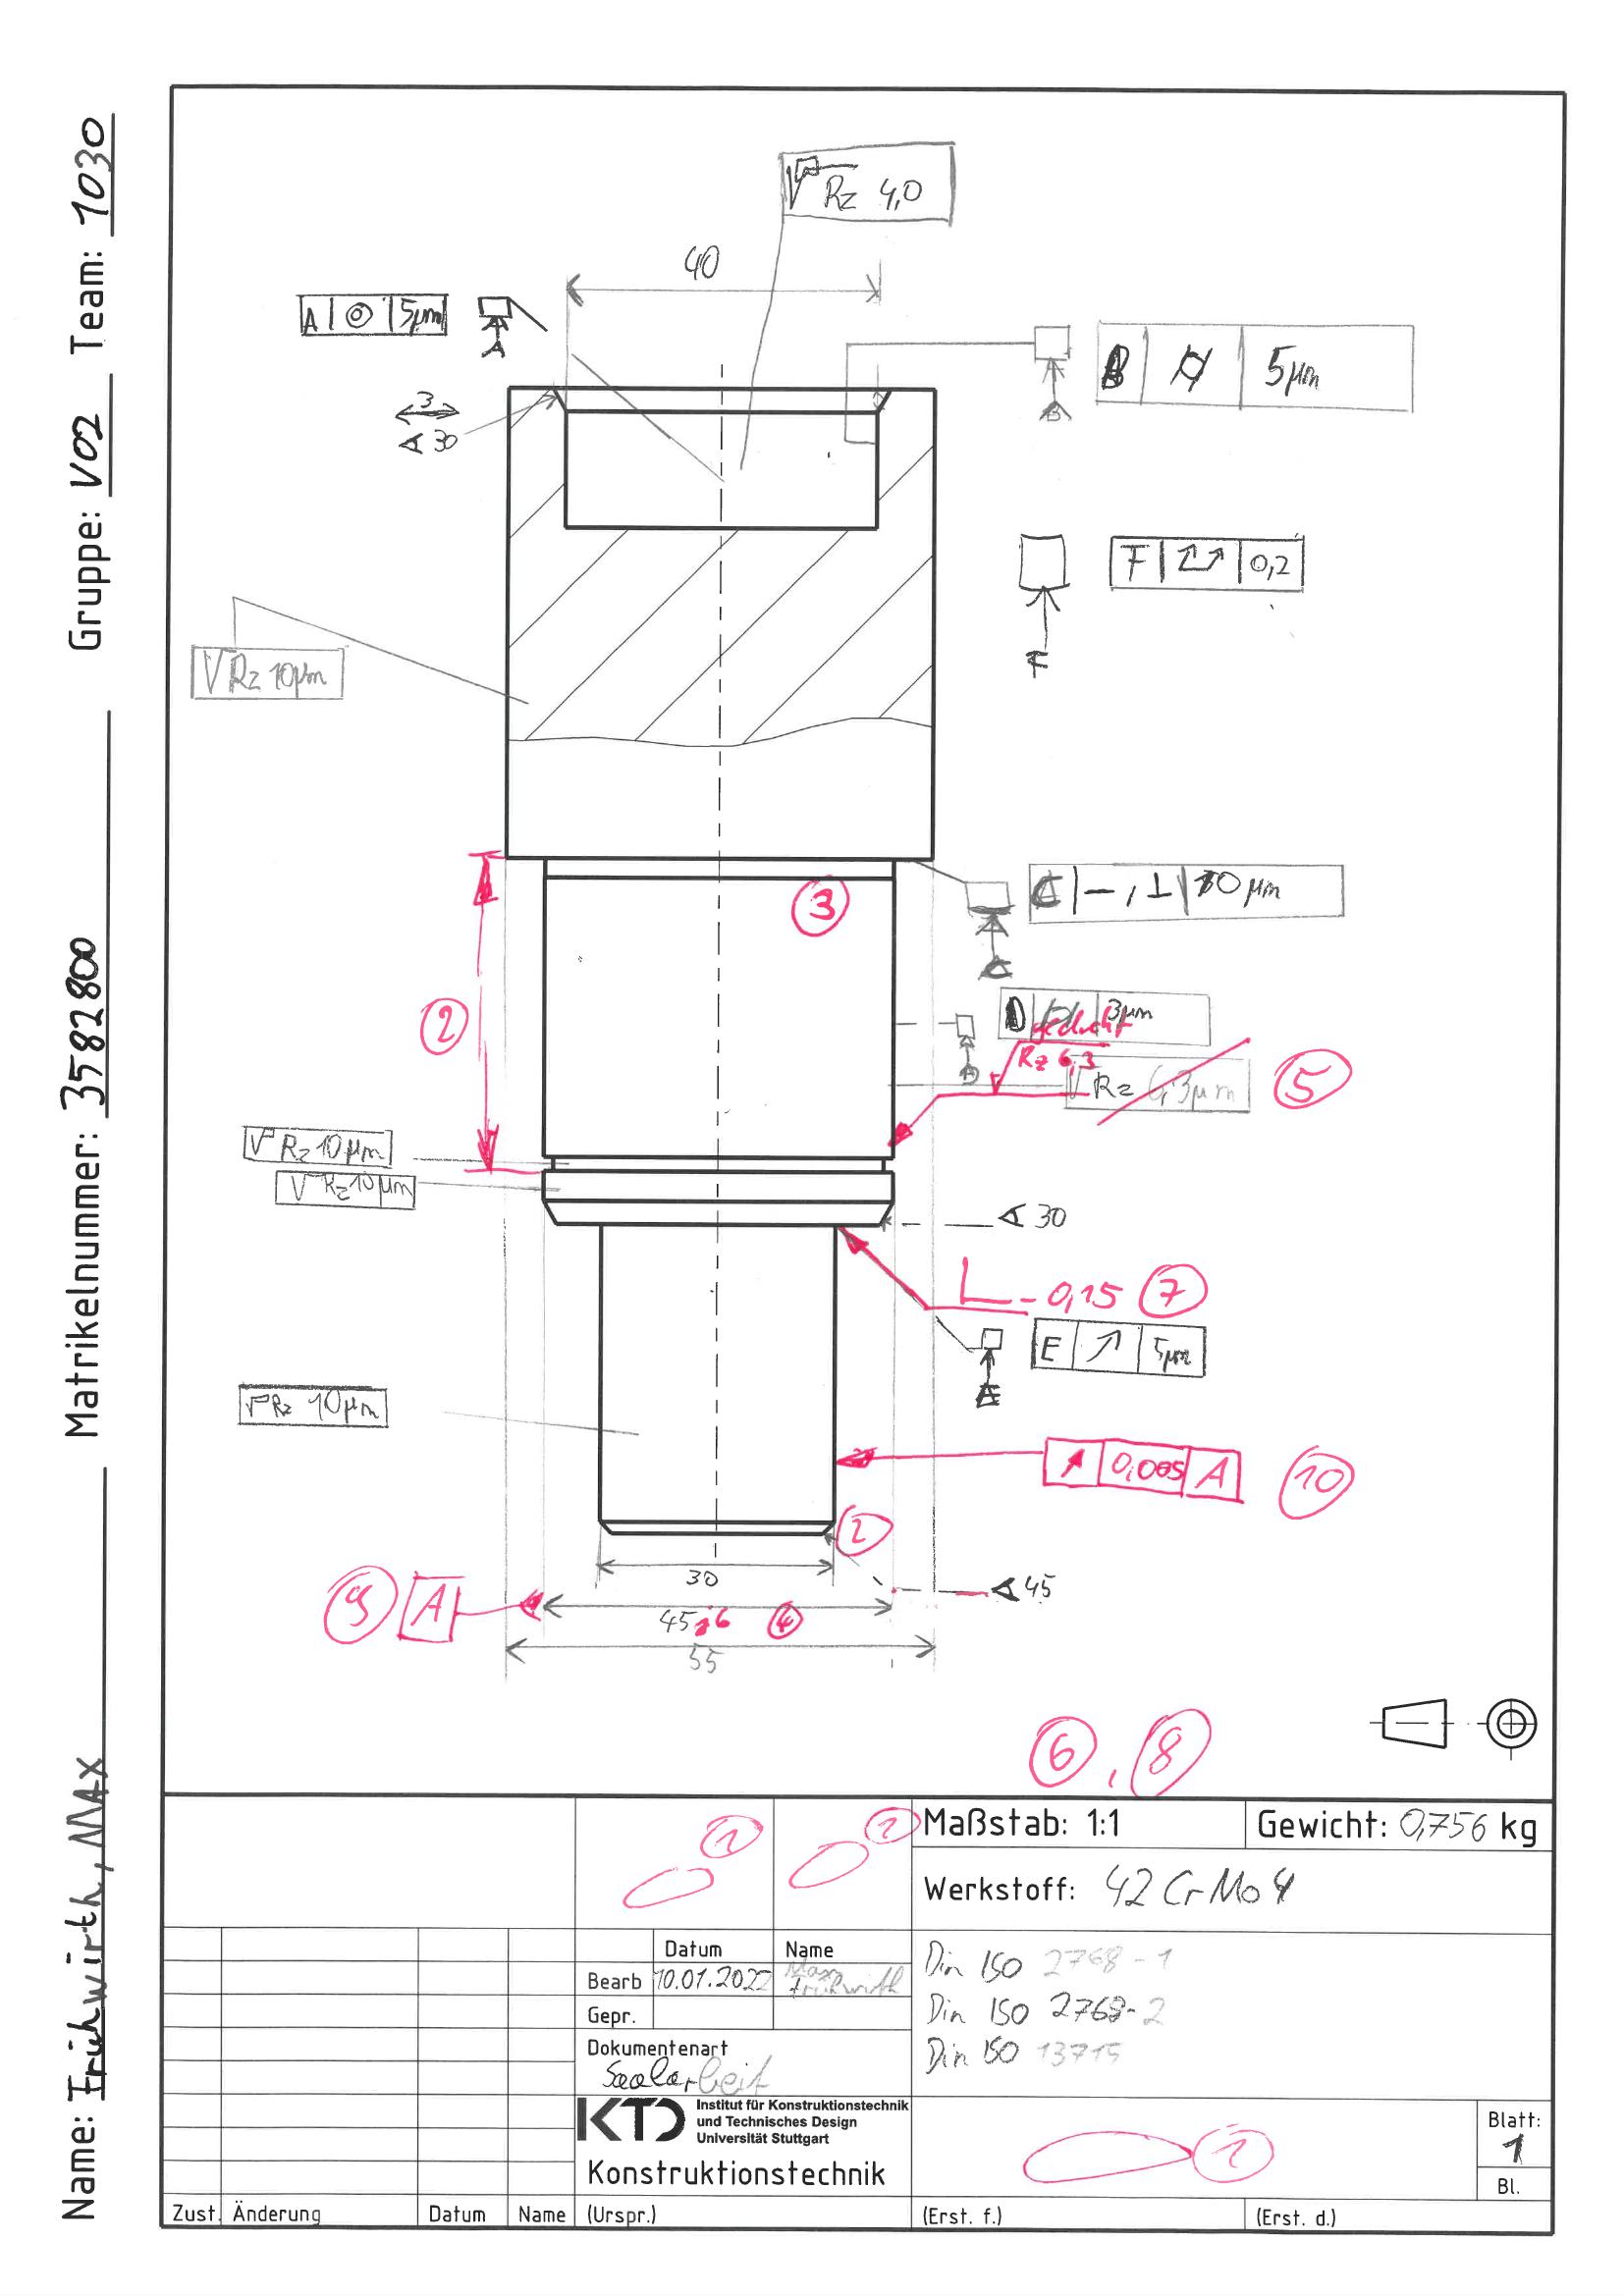 Name: Frühwirth, MAX Matrikelnummer: 3582800 Gruppe: V02 Team: 1030
Rz 4,0
40
A 5µm
A
B 5µm
B
3
30
F 0,2
F
Rz 10µm
C 10µm
C
3
2
D 3µm
D
gedreht
Rz 6,3
Rz 6,3µm
5
Rz 10µm
Rz 10µm
30
- 0,15 7
E 5µm
E
Rz 10µm
0,005 A 10
2
30
45
9 A
45 j6 4
55
6, 8
1 1
Maßstab: 1:1 Gewicht: 0,756 kg
Werkstoff: 42CrMo4
Datum Name
Bearb 10.01.2022 Max Frühwirth
Gepr.
Din ISO 2768-1
Din ISO 2768-2
Din ISO 13715
Dokumentenart
Saalarbeit
KTD Institut für Konstruktionstechnik
und Technisches Design
Universität Stuttgart
Konstruktionstechnik
1
Blatt:
1
Bl.
Zust. Änderung Datum Name (Urspr.) (Erst. f.) (Erst. d.)